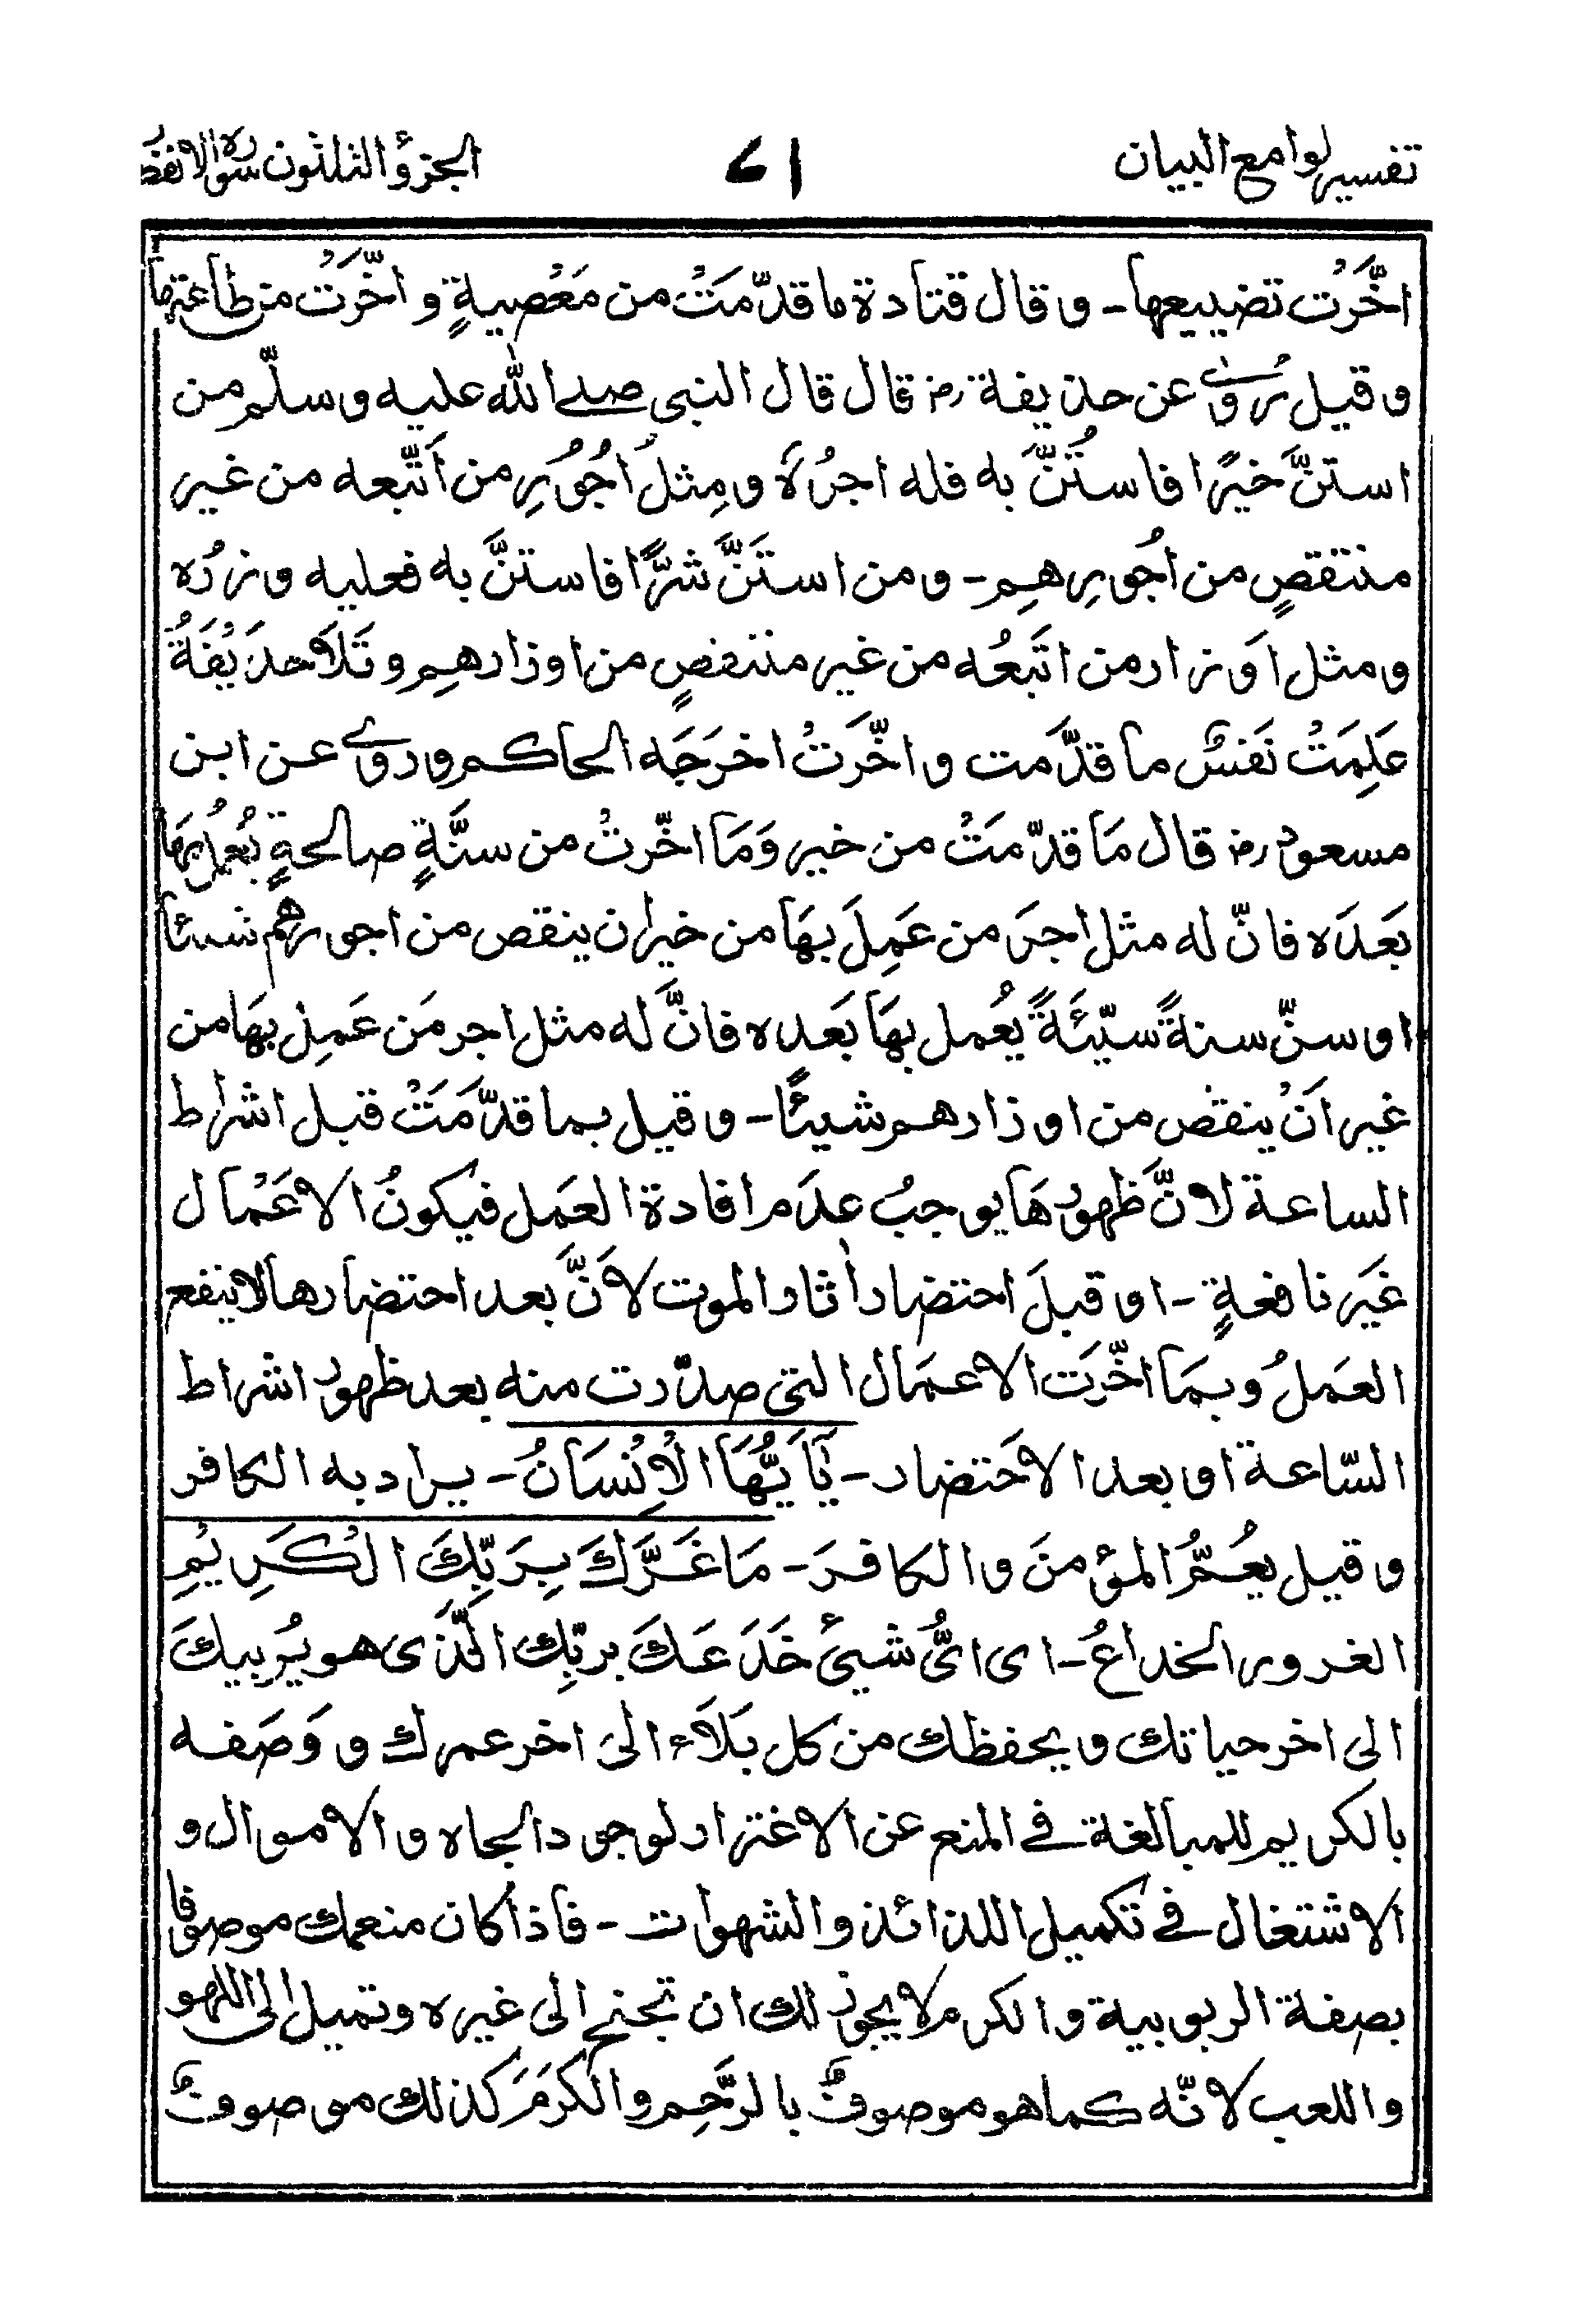 تفسير لوامع البيان ١٧ الجزؤ الثلثون سورة الانفطار
اخَّرَت تضييعها - وقال قتادة ما قدّمَتْ من مَعْصيةٍ و اخّرَتْ من طاعتها
وقيل رُوِىَ عن حذيفة رض قال قال النبى صلے الله عليه وسلّم من
استنَّ خيرًا فاستُنَّ به فله اجرُه ومِثلُ اُجُوْرِ من اَتّبعه من غير
منتقصٍ من اُجُورِهِم - ومن استَنَّ شرًّا فاستنَّ به فعليه وزرُه
ومثل اَوزار من اتَّبَعُه من غير منتقصٍ من اوزارهِم وتَلَا حذَيْفَةُ
عَلِمَتْ نَفسٌ ما قدَّمَت واخَّرَتْ اخرَجَه الحاكم وروى عن ابن
مسعود رض قال مَا قدّمَتْ من خير وَمَا اخّرتْ من سنَّةٍ صالحةٍ يُعْمَلُ بهَا
بَعدَه فانّ له مثل اجرَ من عَمِلَ بهَا من خيران ينقص من اجورهم شيئا
او سنّ سنةً سيّئَةً يُعمل بهَا بَعده فانَّ له مثل اجر مَن عَمِل بهَا من
غير اَنْ ينقص من اوزارهم شيئًا - وقيل بما قدّمَتْ قبل اشراط
الساعة لانَّ ظهورهَا يوجبُ عدَم افادة العَمل فيكونُ الاعْمال
غَير نافعةٍ - او قبلَ احتضار اٰثار الموت لانَّ بعد احتضارها لا ينفع
العَملُ وبمَا اخّرَت الاعمَال التى صدّرت منه بعد ظهور اشراط
السّاعة او بعد الاحَتضار - يٰٓاَيُّهَا الْاِنْسَانُ - يراد به الكافر
وقيل يعُمُّ المؤمنَ والكافرَ - مَا غَرَّكَ بِرَبِّكَ الْكَرِيْمِ
الغرور الخداعُ - اى اىُّ شيئٍ خَدَعَكَ بربِّك الَّذى هو يُربيكَ
الى اخر حياتك ويحفظك من كل بَلَاء الى اخر عمرك و وَصَفه
بالكريم للمبالغة فے المنع عن الاغترار لوجود الجاه والاموال و
الاشتغال فے تكميل اللذائذ والشهوات - فاذا كان منعمك موصوفا
بصفة الربوبية والكرم لا يجوز لك ان تجنح الى غيره وتميل الى اللهو
واللعب لانّه كما هو موصوفٌ بالرَّحِم والكرَمَ كذلك موصوفٌ